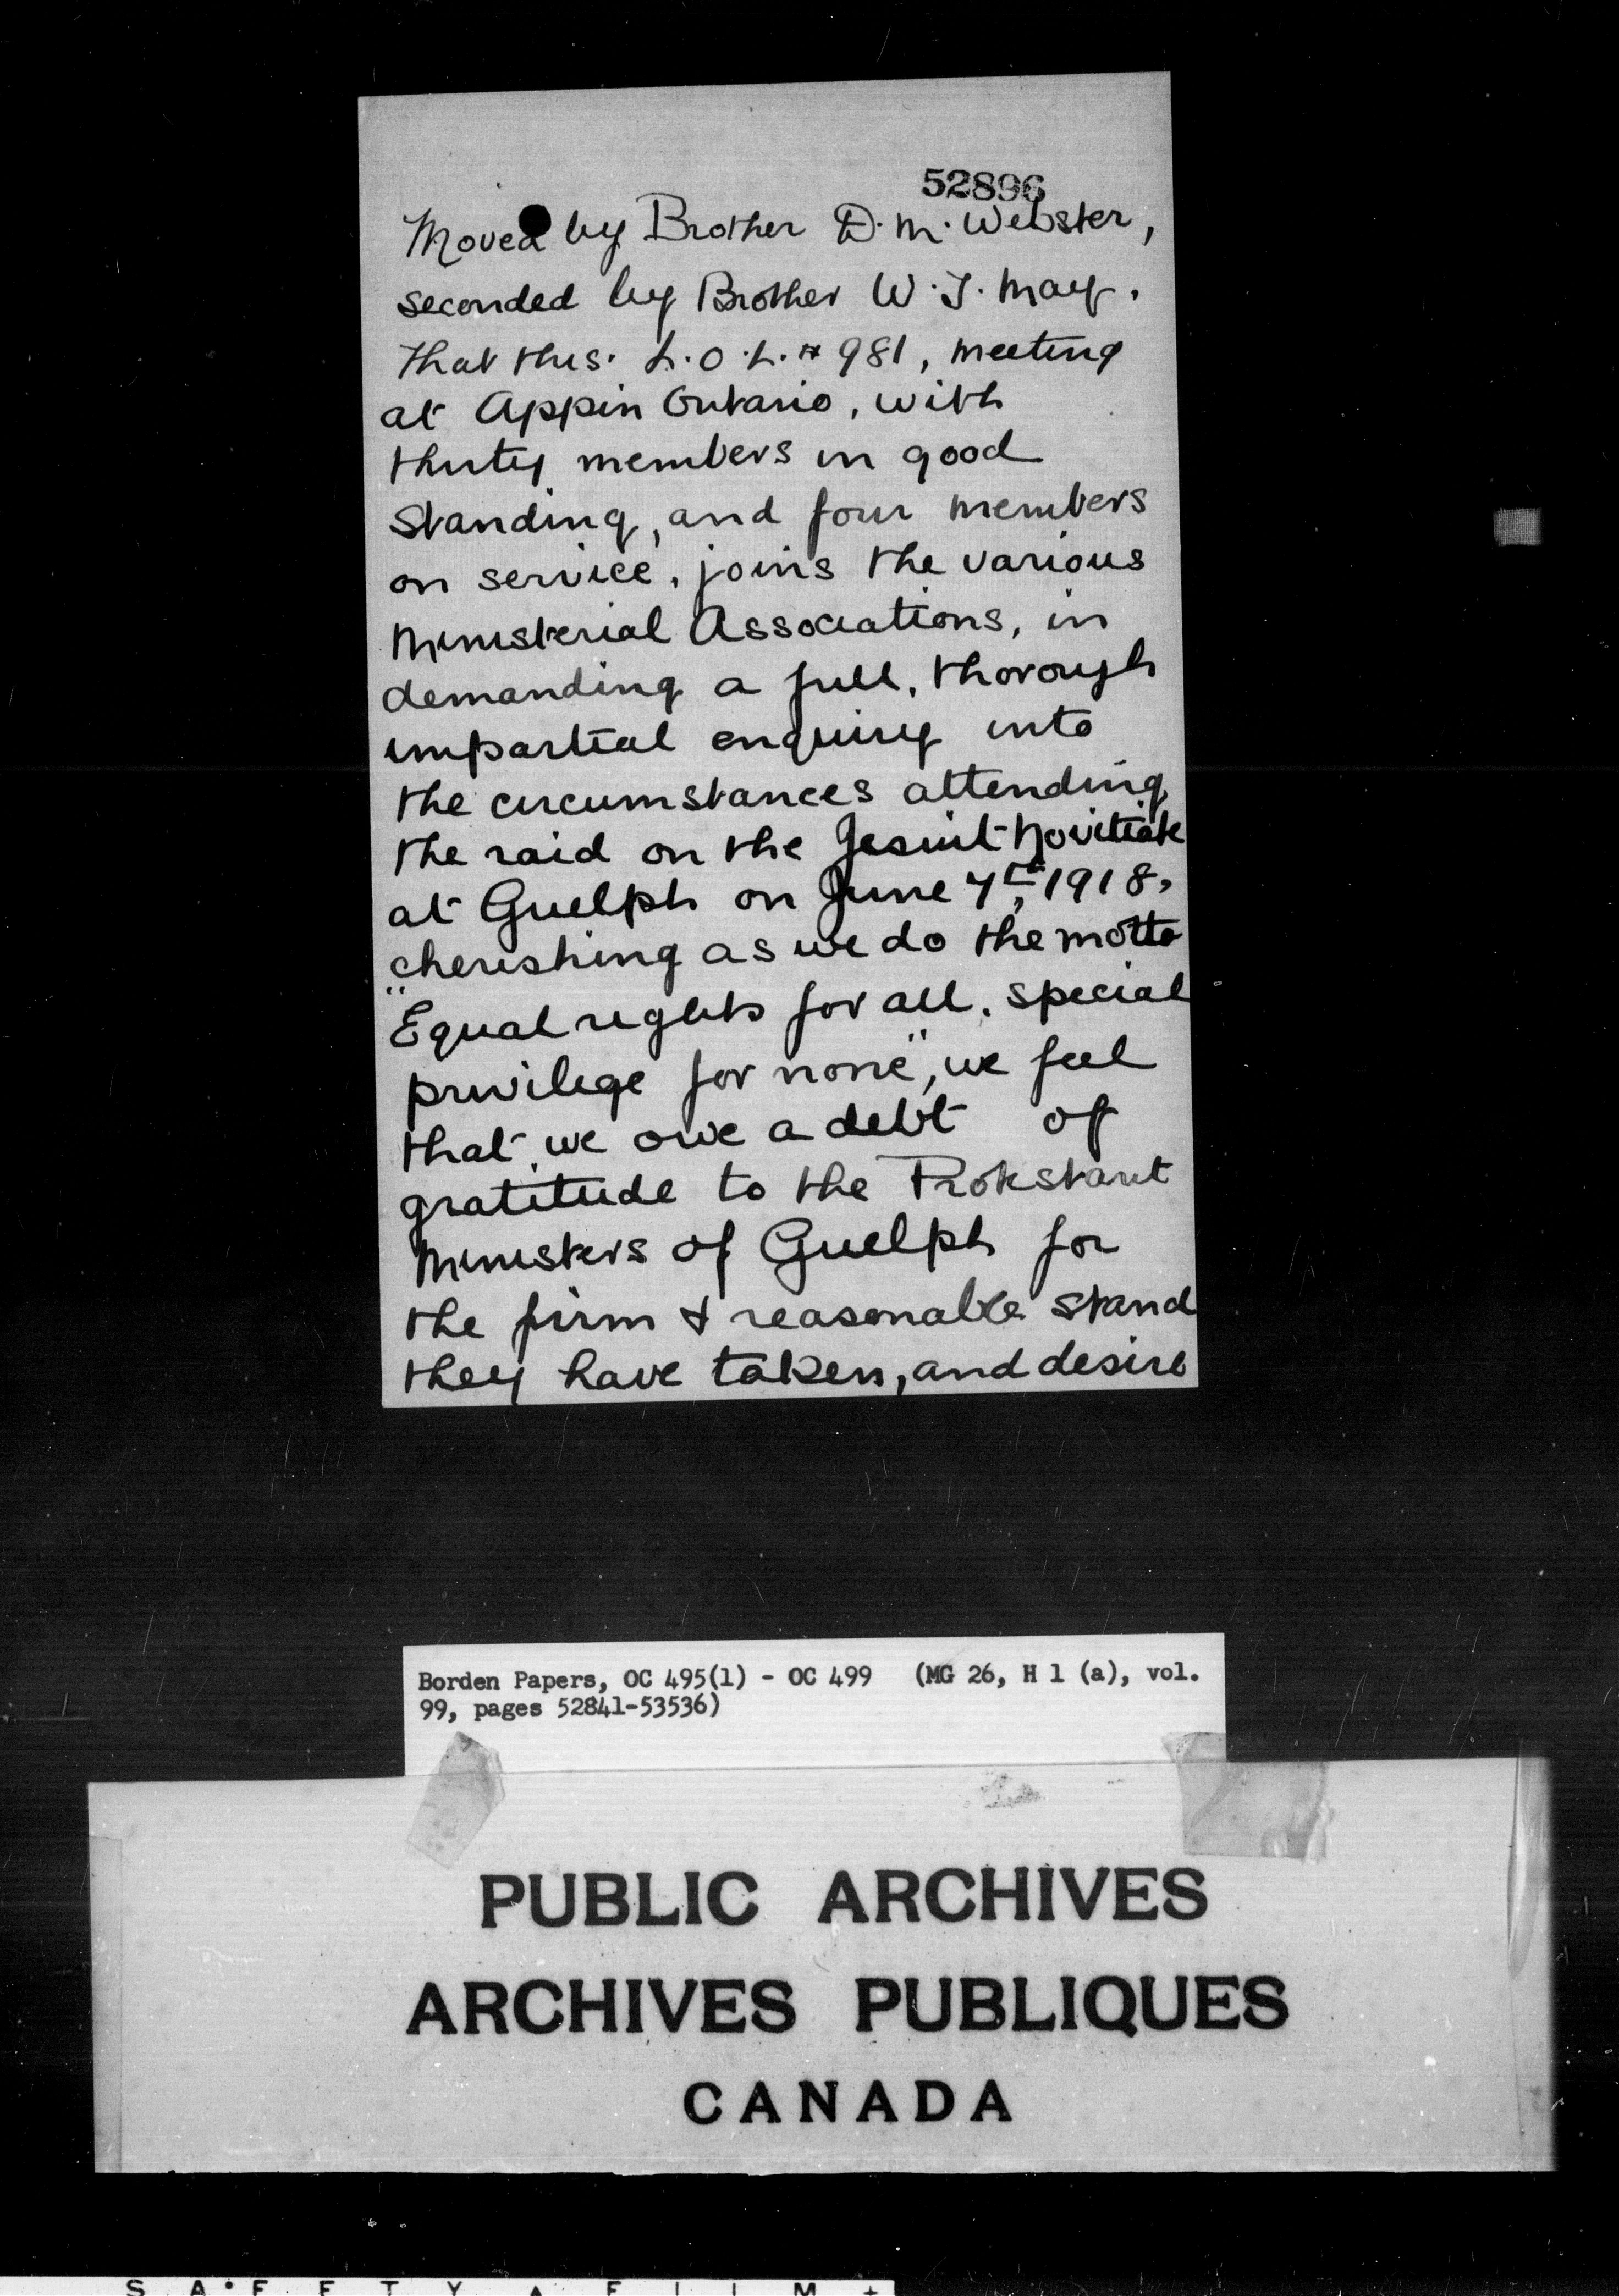 52896
Moved by Brother D. M. Webster,
seconded by Brother W. J. May.
that this. L.O.L. # 981, meeting
at Appin Ontario, with
thirty members in good
Standing, and four members
on service, joins the various
Ministerial Associations, in
demanding a full, thorough
impartial enquiry into
the circumstances attending
the raid on the Jesuit Novitiate
at Guelph on June 7th, 1918,
cherishing as we do the motto
"Equal rights for all, special
privilege for none", we feel
that we owe a debt of
gratitude to the Protestant
Ministers of Guelph for
the firm & reasonable stand
they have taken, and desire
Borden Papers, OC 495(1) - OC 499 (MG 26, H 1 (a), vol.
99, pages 52841-53536)
PUBLIC ARCHIVES
ARCHIVES PUBLIQUES
CANADA
SAFETY FILM